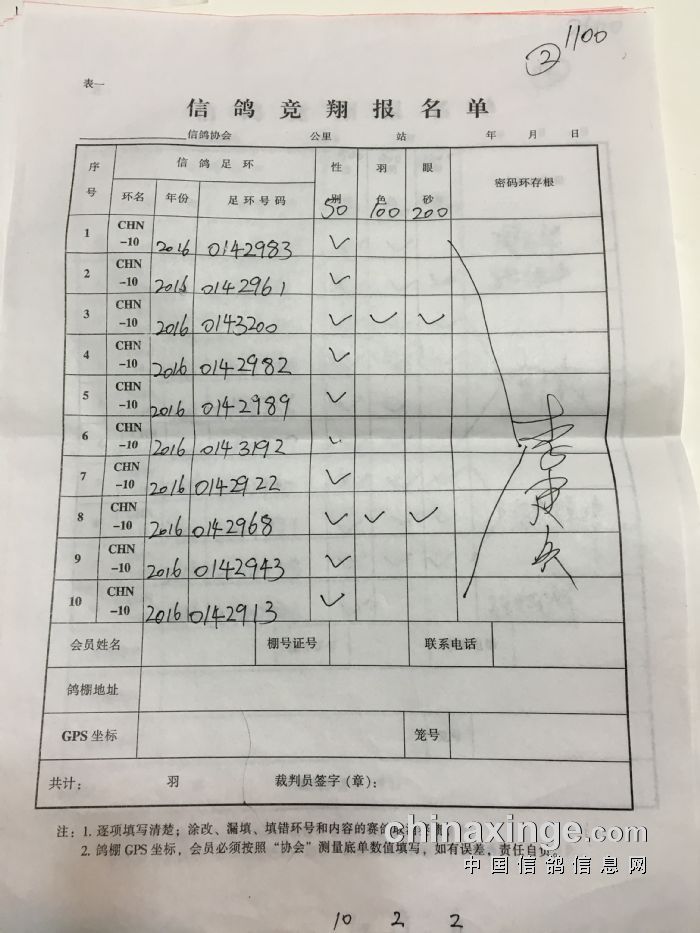 1100
②
表一
信鸽竞翔报名单
信鸽协会 公里 站 年 月 日
序号 信鸽足环 性别 羽色 眼砂 密码环存根
环名 年份 足环号码 50 100 200
1 CHN-10 2016 0142983 ✓
2 CHN-10 2016 0142961 ✓
3 CHN-10 2016 0143200 ✓ ✓ ✓
4 CHN-10 2016 0142982 ✓
5 CHN-10 2016 0142989 ✓
6 CHN-10 2016 0143192 ✓
7 CHN-10 2016 0142922 ✓
8 CHN-10 2016 0142968 ✓ ✓ ✓
9 CHN-10 2016 0142943 ✓
10 CHN-10 2016 0142913 ✓
会员姓名 棚号证号 联系电话
鸽棚地址
GPS坐标 笼号
共计： 羽 裁判员签字（章）：
注：1. 逐项填写清楚；涂改、漏填、填错环号和内容的赛鸽取
2. 鸽棚GPS坐标，会员必须按照“协会”测量底单数值填写，如有误差，责任自负。
chinaxinge.com
中国信鸽信息网
10 2 2